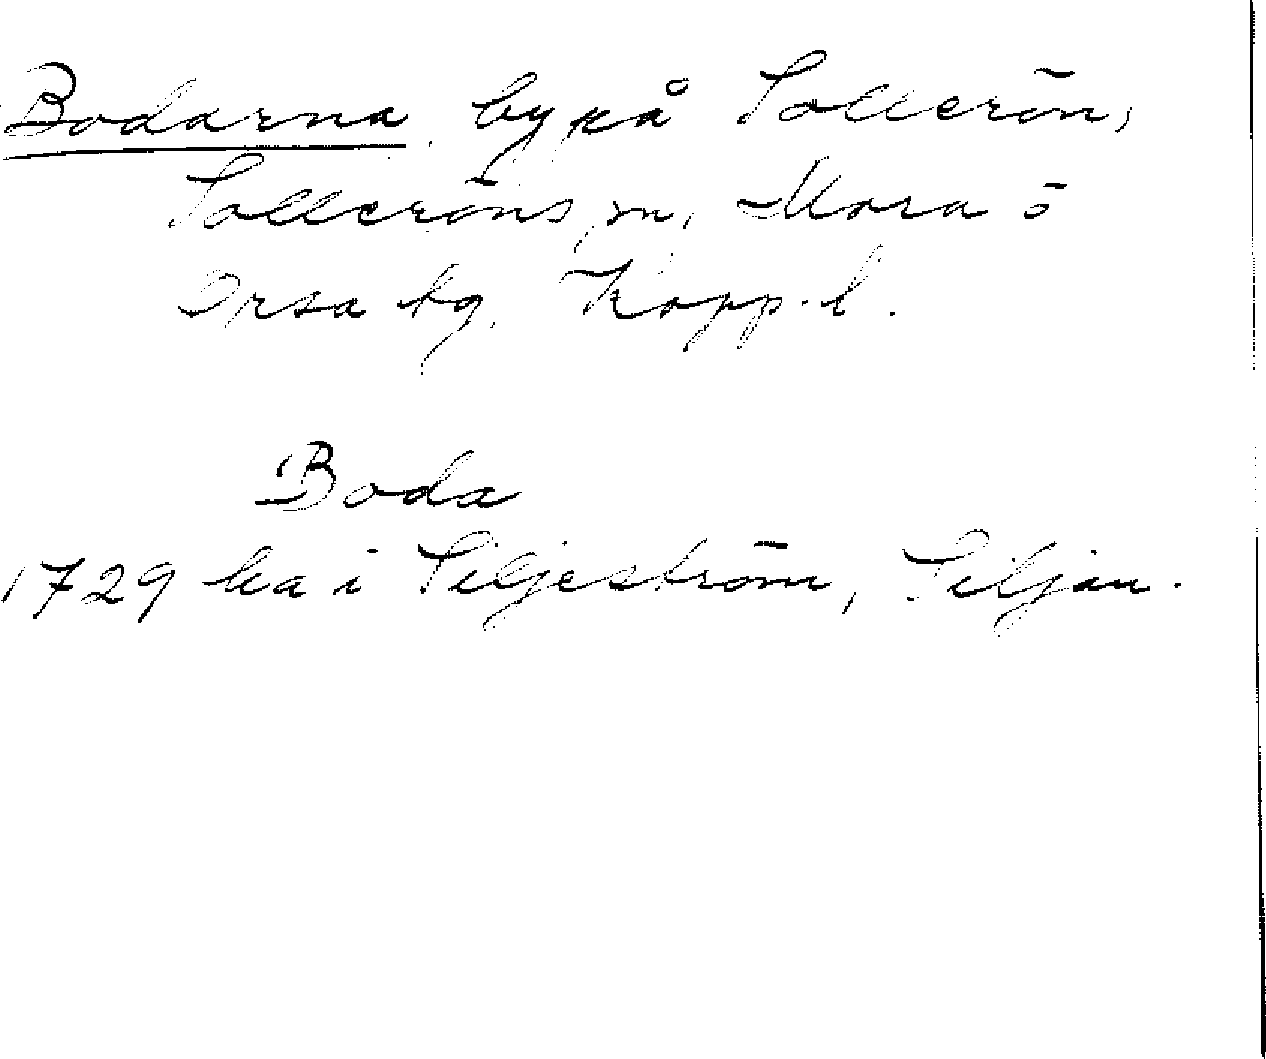 Bodarna, by på Sollerön,
Solleröns sn, Mora o
Orsa tg. Kopp. l.
Boda
1729 ka i Siljeström, Siljan.